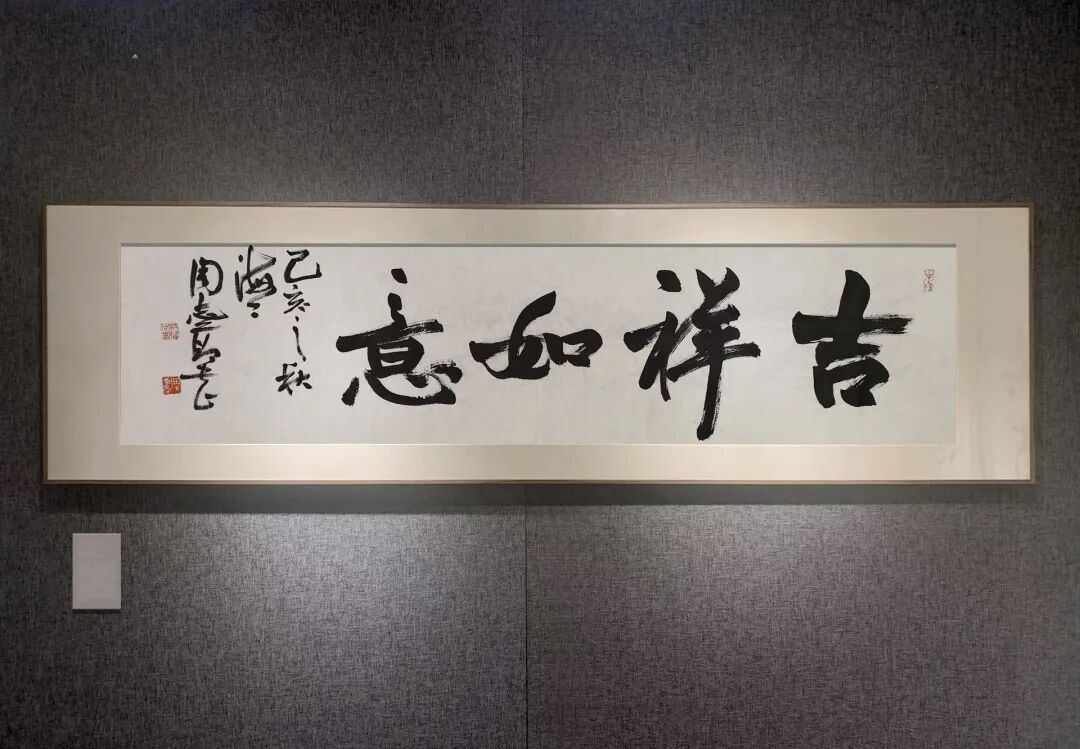 吉祥如意
己亥之秋
海上
周志高书